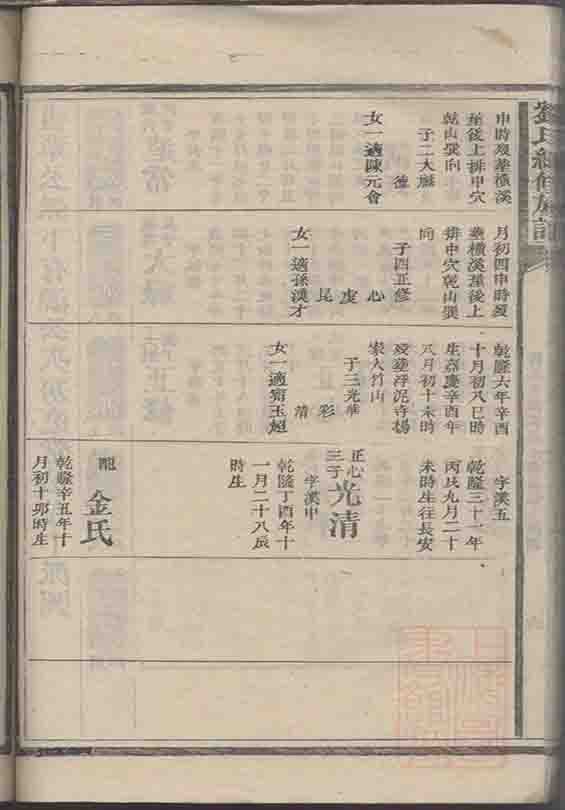 申時歿葬橫溪
埜後上排中穴
乾山㢲向
子二大勳
德
女一適陳元會
月初四申時歿
葬橫溪埜後上
排中穴乾山㢲
向
子四正修
心
虔
昆
女一適孫漢才
乾隆六年辛酉
十月初八巳時
生嘉慶辛酉年
八月初十未時
歿葬浮泥寺楊
家大竹山
子三光華
彩
清
女一適甯玉魁
字漢五
乾隆三十一年
丙戌九月二十
未時生往長安
正心
三子光清
字漢中
乾隆丁酉年十
一月二十八辰
時生
配
金氏
乾隆辛丑年十
月初十卯時生